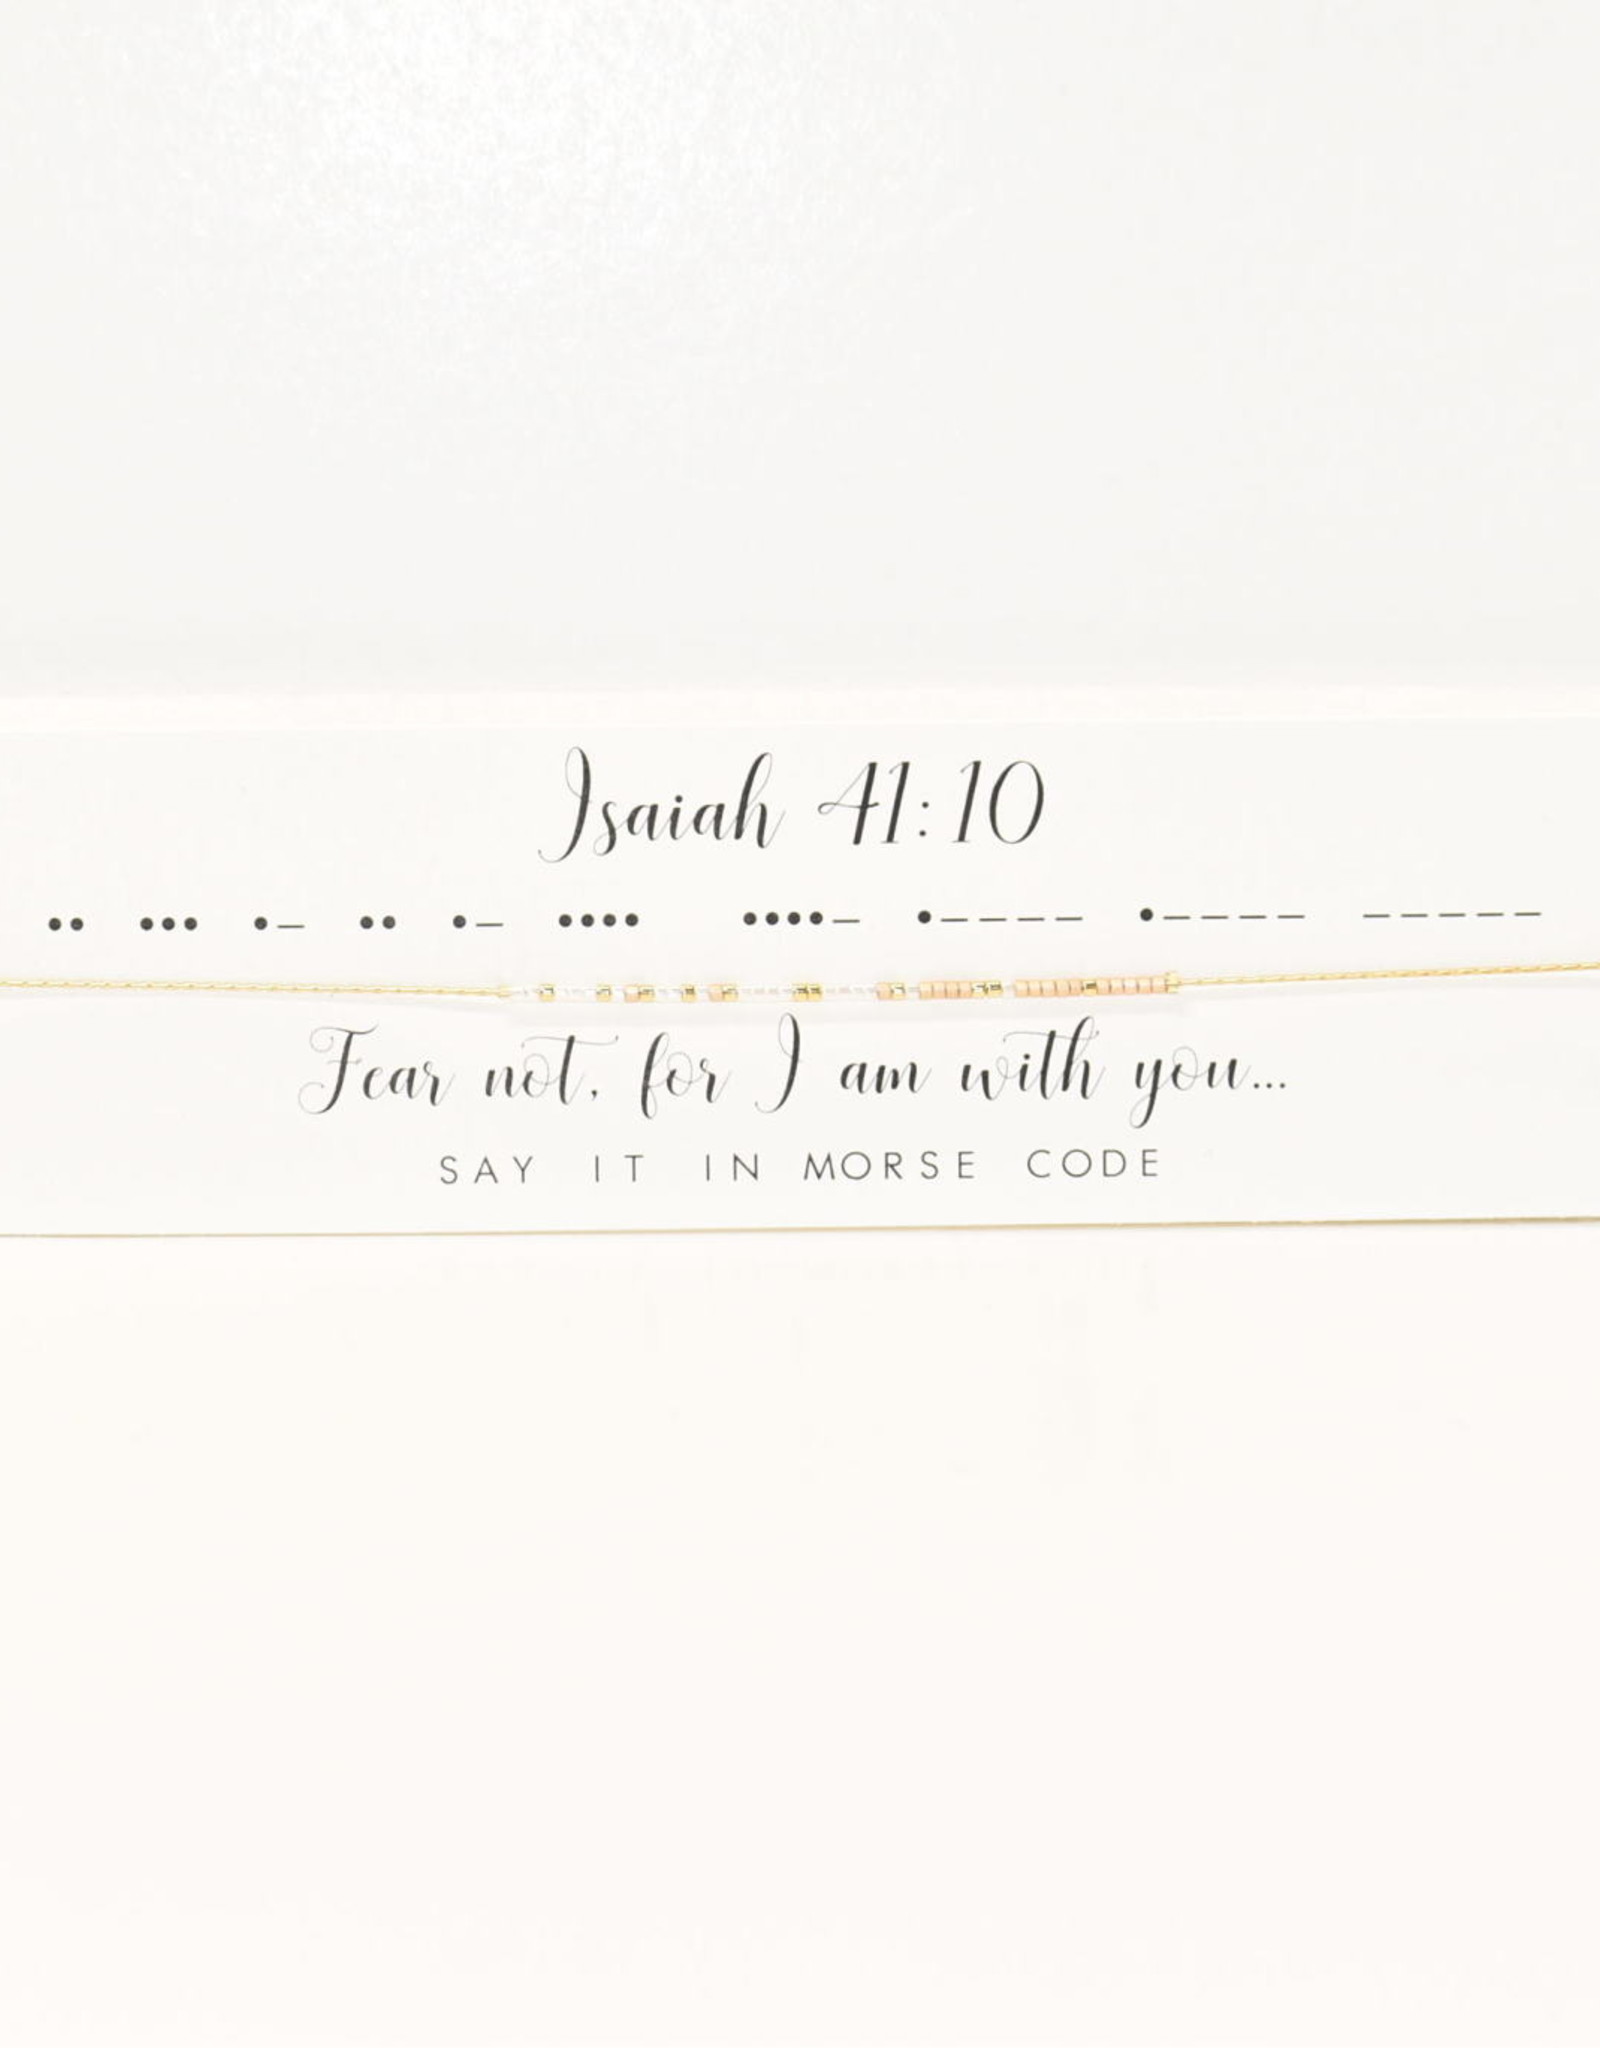 Isaiah 41:10
•• ••• •– •• •– •••• ••••– •–––– •–––– –––––
Fear not, for I am with you...
SAY IT IN MORSE CODE